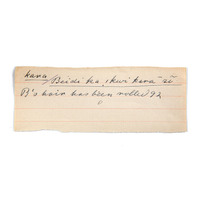 kava
Beidi ka, kwi kava
B's hair has been rolled 92